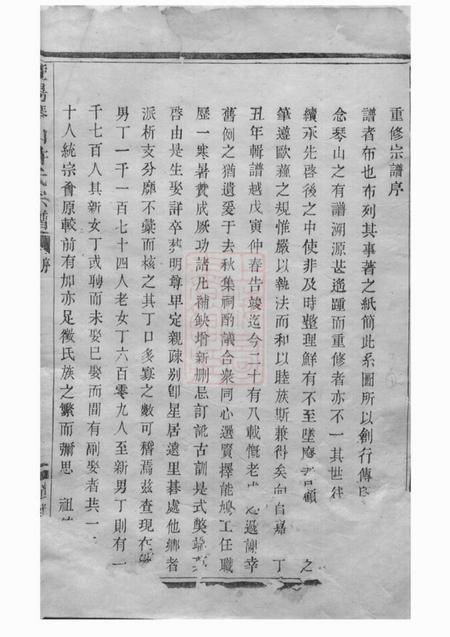 重修宗譜序
譜者布也布列其事著之紙簡此系圖所以創行傳
念琴山之有譜溯源甚遙踵而重修者亦不一其世往
續承先啓後之中使非及時整理鮮有不至墜 之
筆遵歐蘇之規惟嚴以執法而和以睦族斯兼得矣向自嘉 丁
丑年輯譜越戊寅仲春告竣迄今二十有八載慨老 邁 幸
舊側之猶遺爰于去秋集祠酌議合衆同心選賢擇能鳩工任職
歷一寒暑冀成厥功諸凡補缺增新刪忌訂訛古制是式奠
啓由是生娶詳卒葬明尊卑定親疎别卽星居遠里碁處他鄉者
派析支分靡不彙而核之其丁口多寡之數可稽焉兹查現在
男丁一千一百七十四人老女丁六百零九人至新男丁則有一
千七百人其新女丁或聘而未娶已娶而間有副娶者共一
十人統宗會原較前有加亦足徵氏族之繁而彌思 祖
宗譜
序